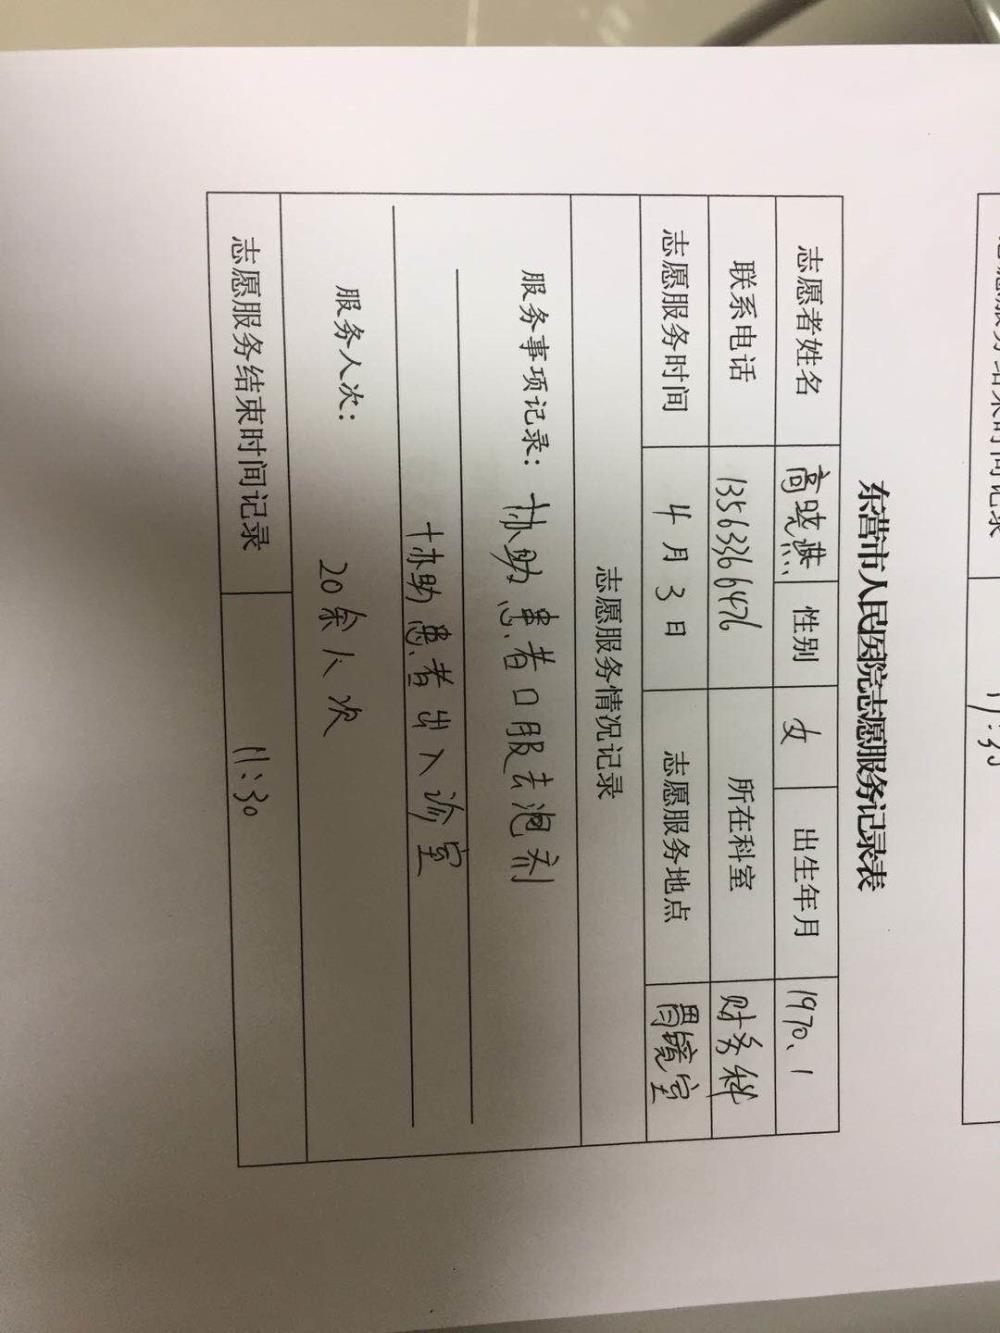 东营市人民医院志愿服务记录表
志愿者姓名 高晓燕 性别 女 出生年月 1970、1
联系电话 13563366476 所在科室 财务科
志愿服务时间 4月3日 志愿服务地点 胃镜室
志愿服务情况记录
服务事项记录：协助患者口服去泡剂
协助患者出入诊室
服务人次：
20余人次
志愿服务结束时间记录 11:30